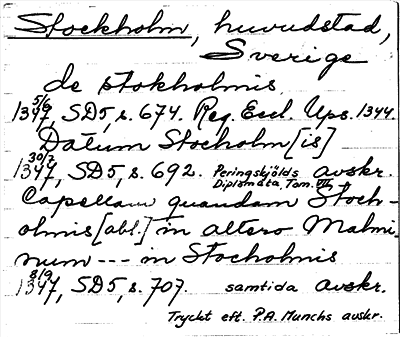 Stockholm, huvudstad,
Sverige
de stokholmis
5/9
1347, SD5, s. 674. Reg. Eccl. Ups. 1344.
Datum Stocholm[is]
30/7
1347, SD5, s. 692. Peringskjölds avskr.
Diplomata, Tom. VII,
Capellam quandam Stoch-
olmis [abl.] in altero Malmi
num --- in Stocholmis
8/9
1347, SD5, s. 707. samtida avskr.
Tryckt eft. P.A. Munchs avskr.